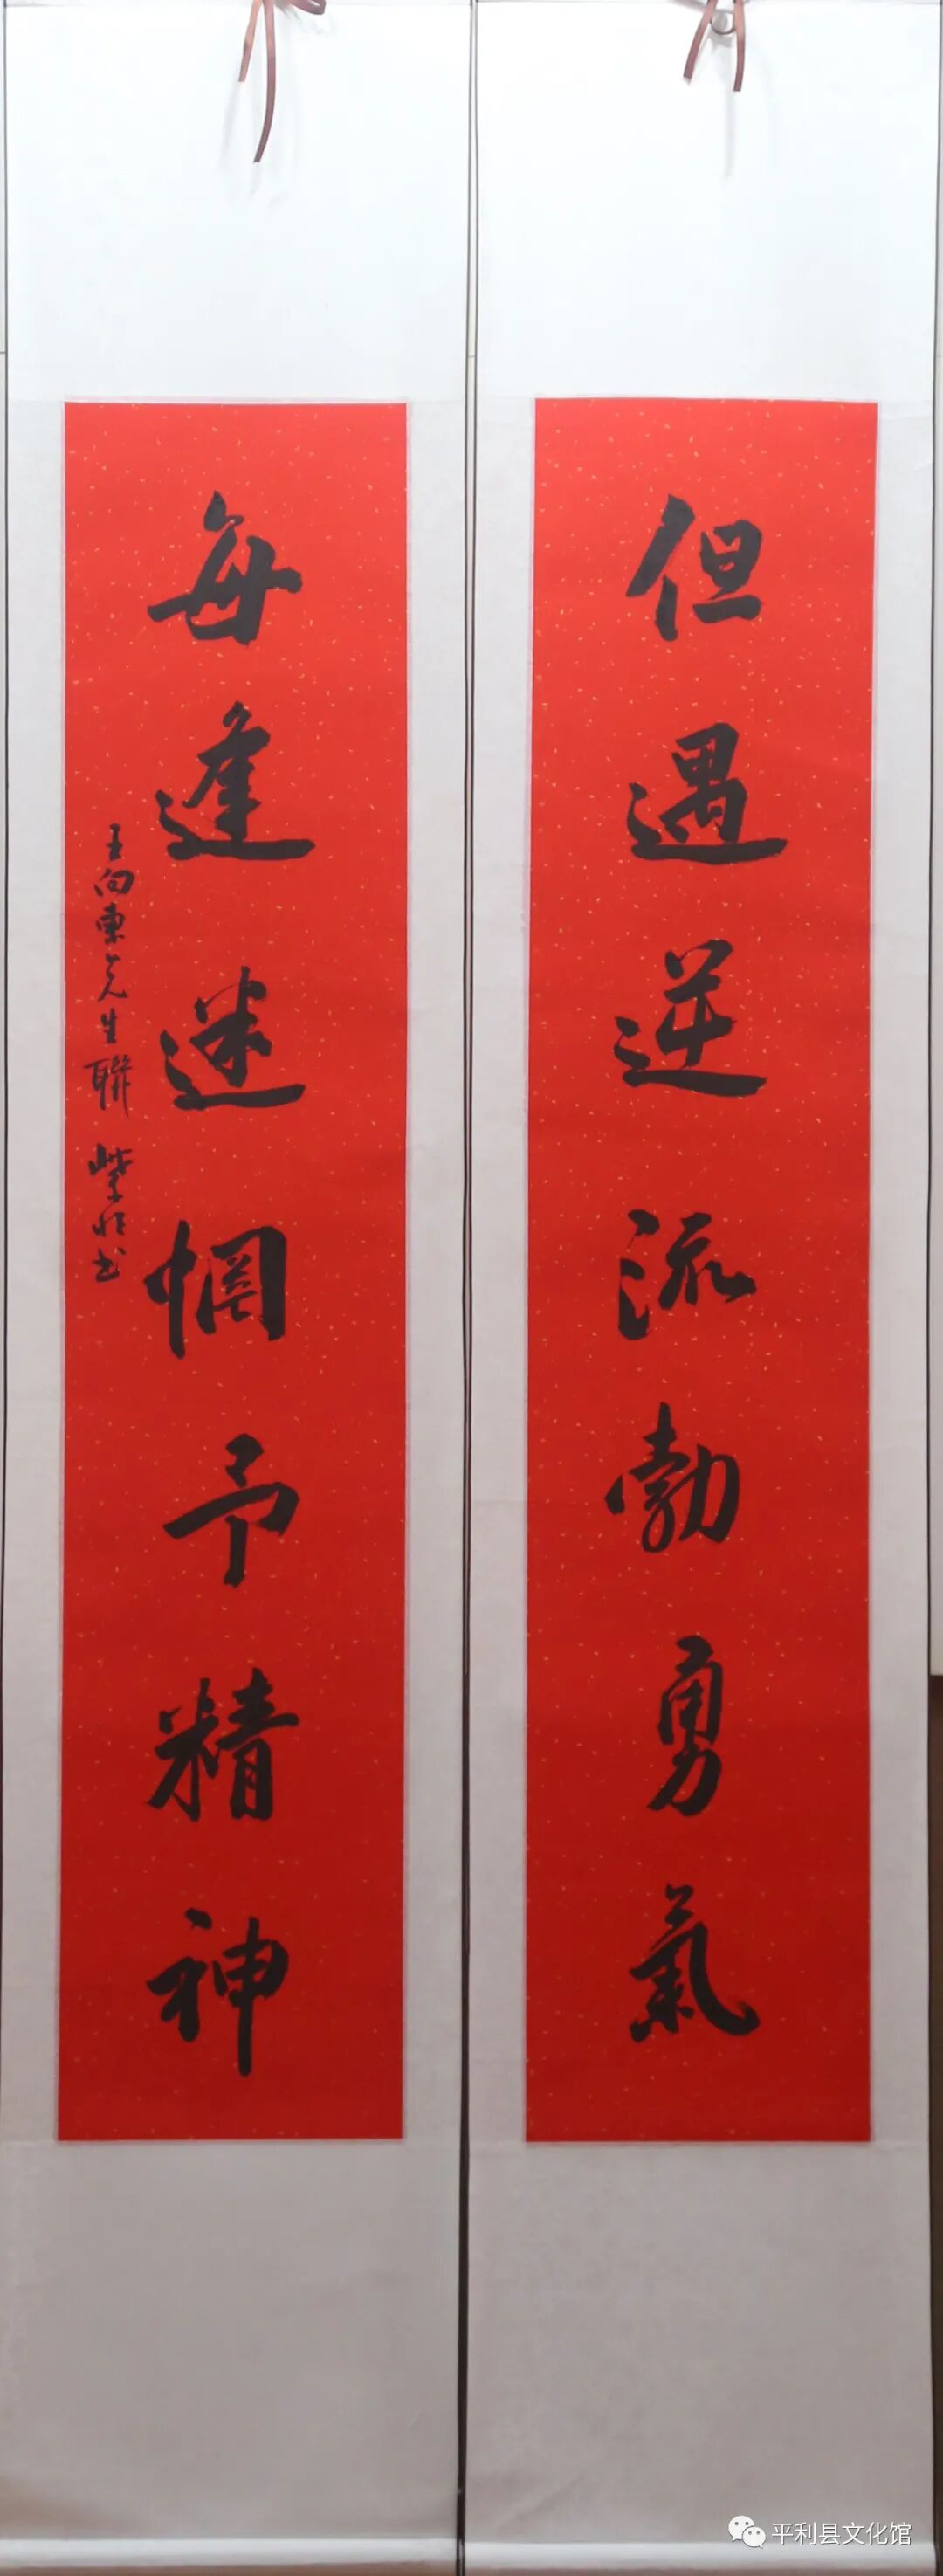 但遇逆流勃勇氣
每逢迷惘予精神
王向東先生聯 紫恒书
平利县文化馆